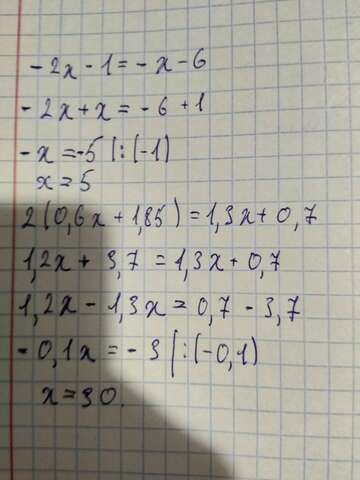 -2x-1=-x-6
-2x+x=-6+1
-x=-5 |:(-1)
x=5
2(0,6x+1,85)=1,3x+0,7
1,2x+3,7=1,3x+0,7
1,2x-1,3x=0,7-3,7
-0,1x=-3 |:(-0,1)
x=30.